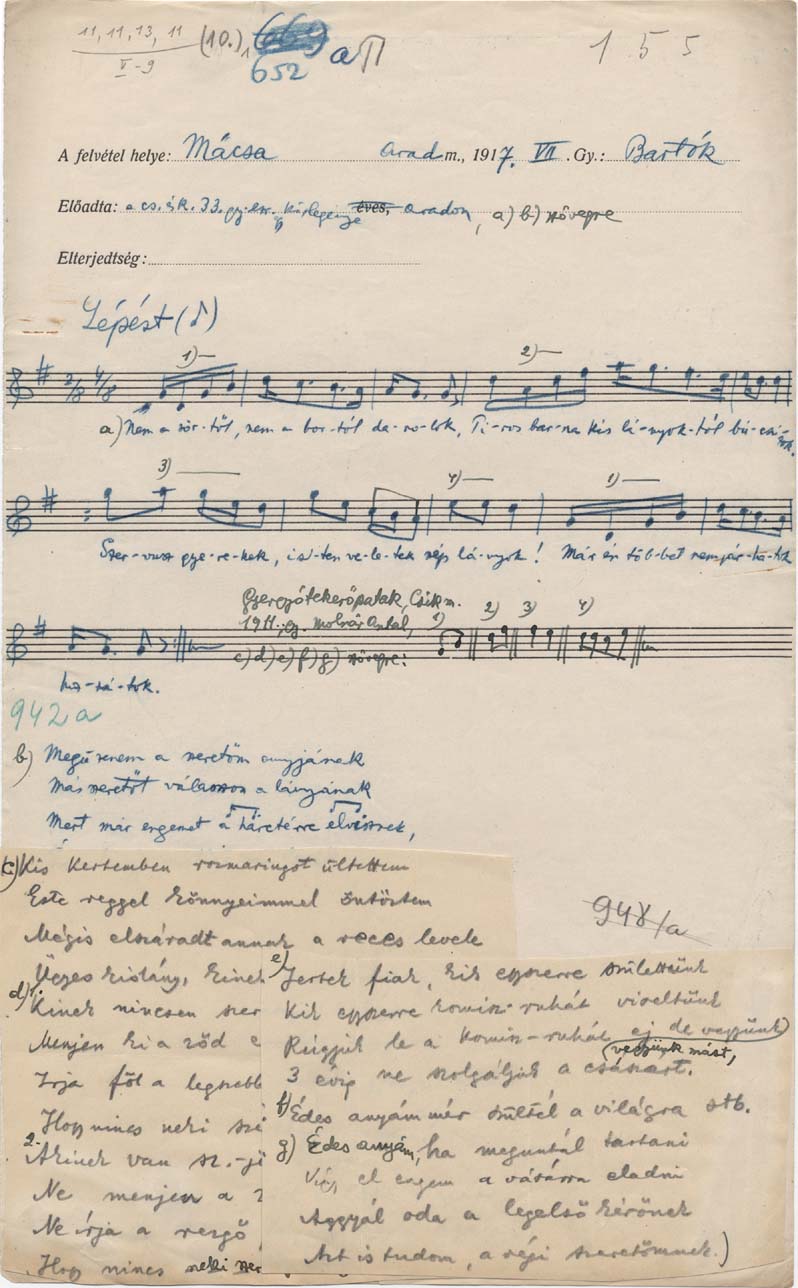 11, 11, 13, 11
V - 9
(10.)
652
a II
155
A felvétel helye: Mácsa Arad m., 1917. VII. Gy.: Bartók
Előadta: a cs. és k. 33. gy. ezr. éves, Aradon, a) b) szövegre
Elterjedtség:
Lépést (♪)
1) 2)
2/8 4/8
a) Nem a sör-től, nem a bor-tól da-no-lok, Pi-ros bar-na kis lá-nyok-tól bú-csú-zok.
3) 4) 1)
Szer-vusz gye-re-kek, is-ten ve-le-tek szép lá-nyok! Már én töb-bet nem jár-ha-tok
Gyergyótekerőpatak, Csík m.
1911., gy. Molnár Antal,
c) d) e) f) g) szövegre:
1) 2) 3) 4)
ho-zzá-tok.
942a
b) Megüzenem a szeretőm anyjának
Más szeretőt válasszon a lányának
Mert már engemet a harctérre elvisznek,
c) Kis kertemben rozmaringot ültettem
Este reggel könnyeimmel öntöztem
Mégis elszáradt annak a reces levele
948/a
e) Jertek fiak, kik egyszerre születtünk
d) 1. Kinek nincsen szer
Kik egyszerre komisz-ruhát viseltünk
Menjen ki a zöd e
Rúgjuk le a komisz-ruhát ej de vegyünk)
(vegyünk mást,
Irja föl a legszebb
3 évig ne szolgáljuk a császárt.
Hogy nincs neki sze
f) Édes anyám mér szültél a világra stb.
2. Akinek van sz.-je
g) Édes anyám, ha meguntál tartani
Ne menjen a z
Vigy el engem a vásárra eladni
Ne írja a rezgő
Aggyál oda a legelső kérőnek
Hogy nincs neki szer
Azt is tudom, a régi szeretőmnek.)